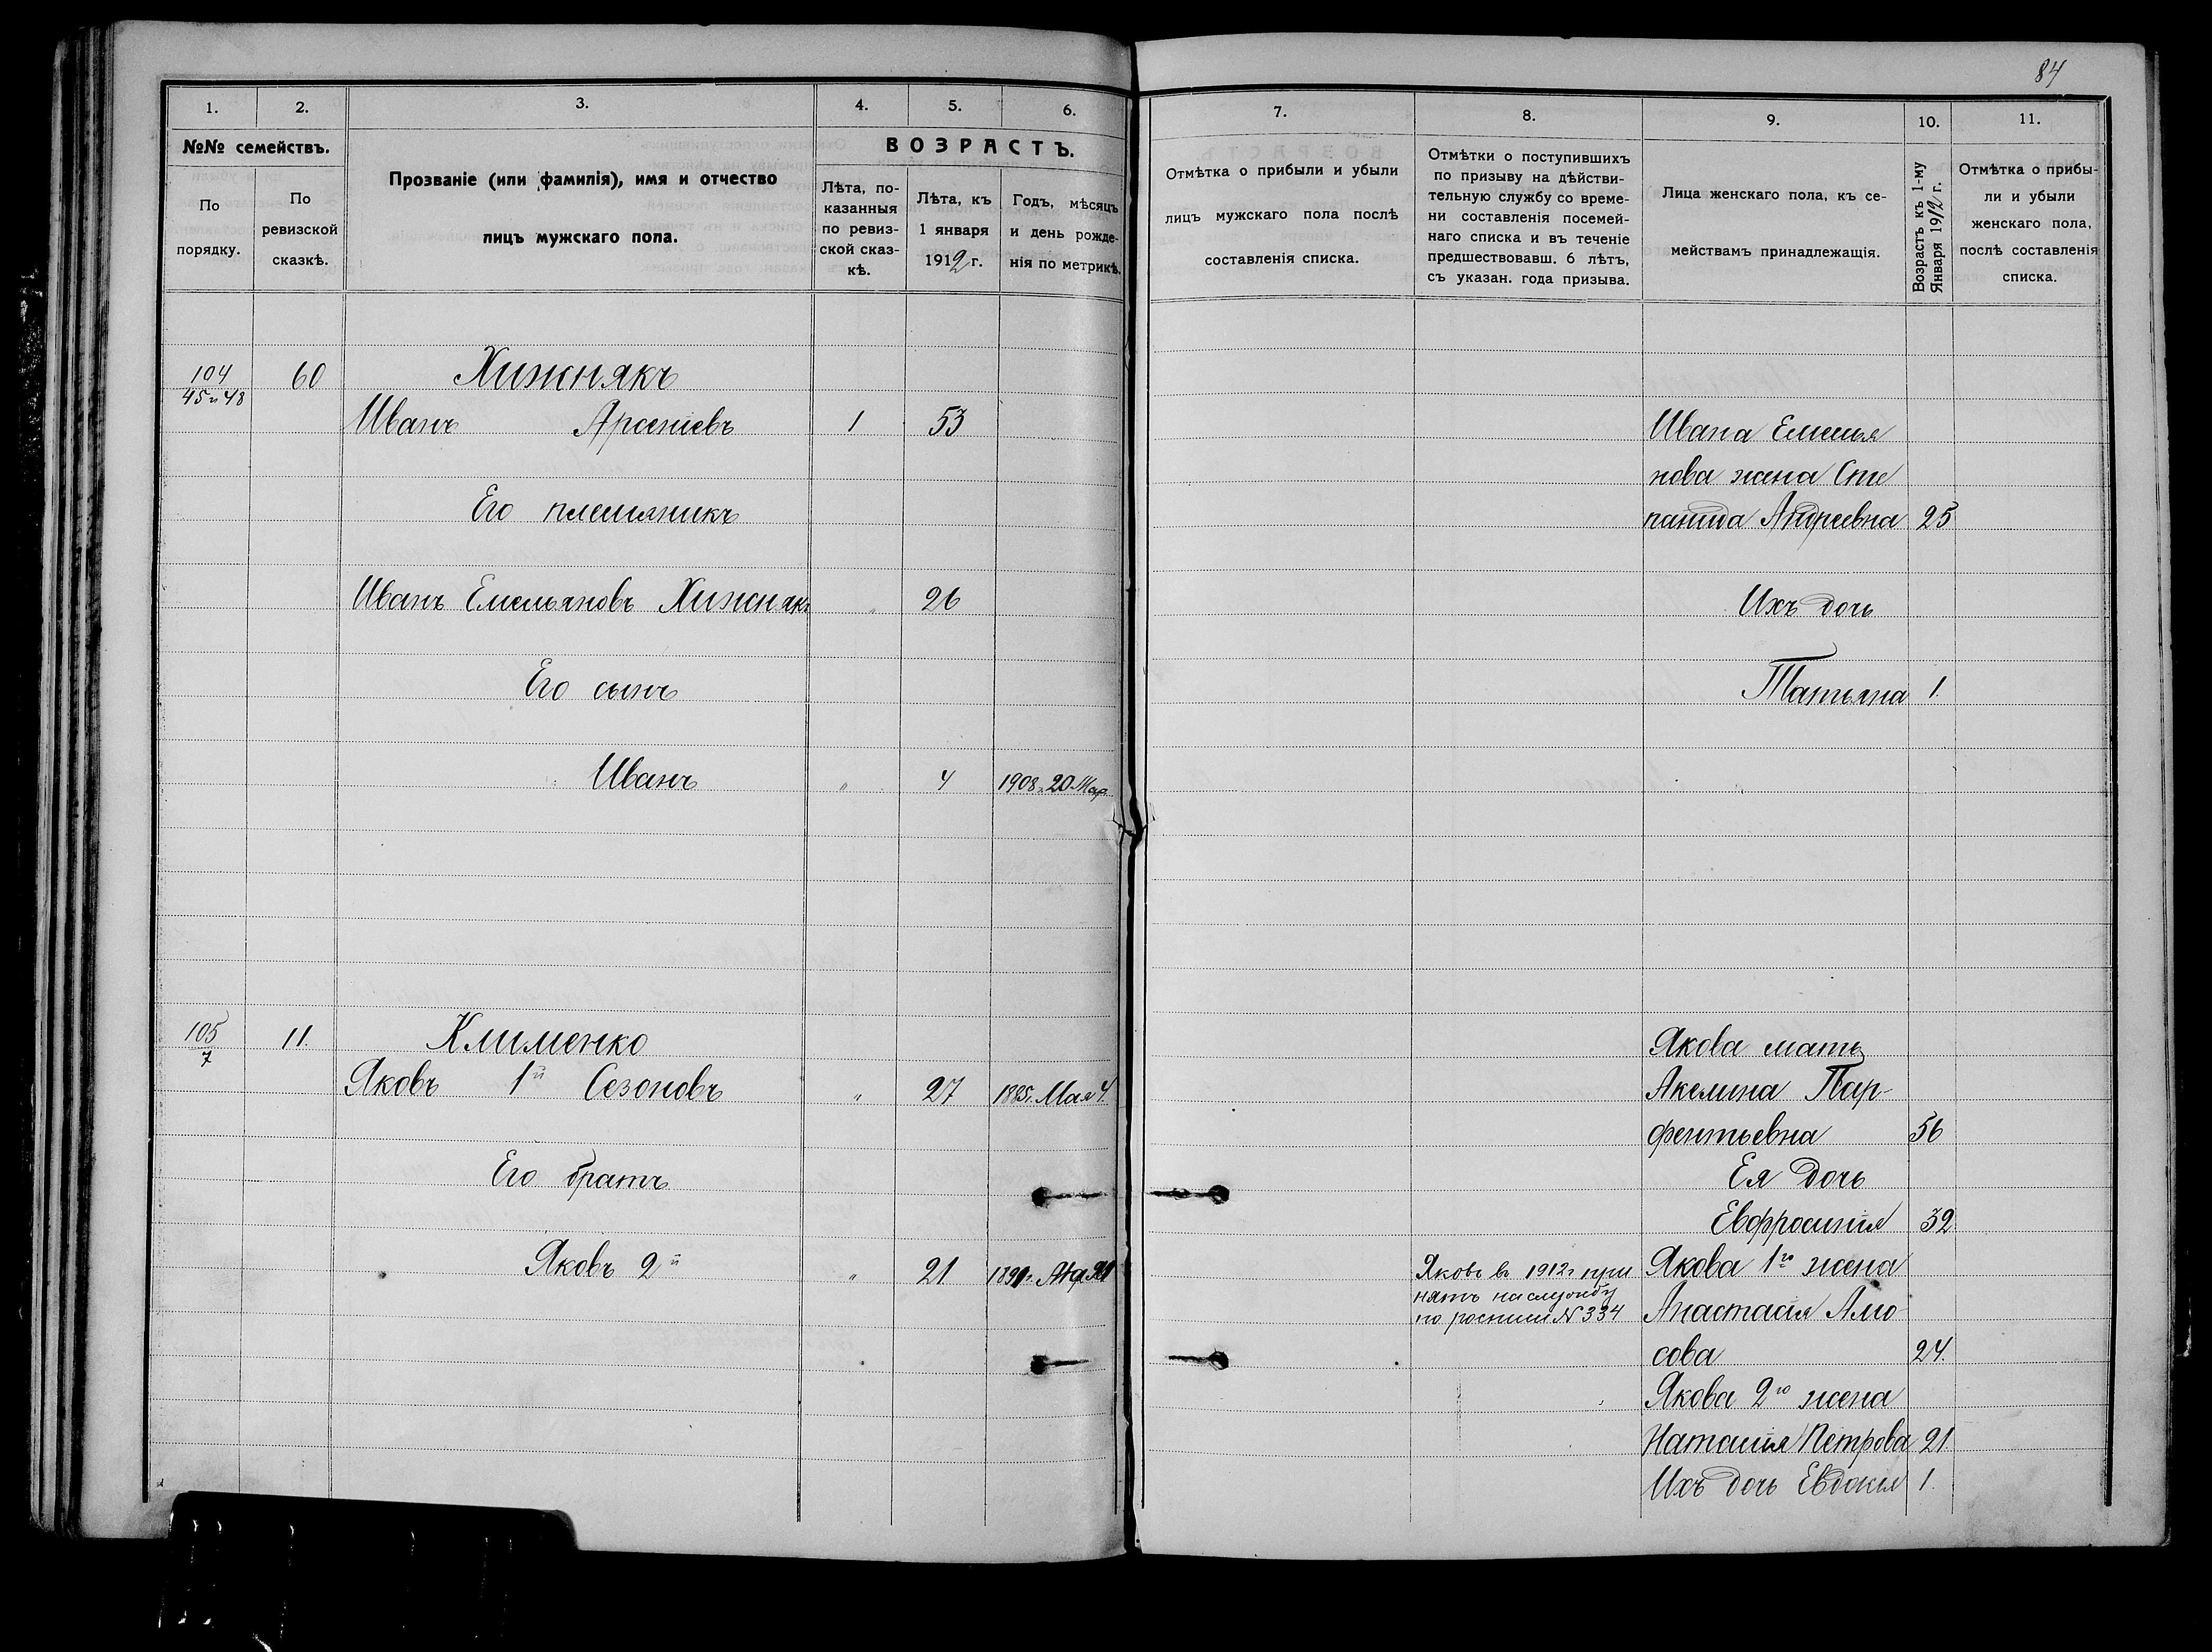 84
1. 2. 3. 4. 5. 6. 7. 8. 9. 10. 11.
№№ семействъ.
По порядку.
По ревизской сказкѣ.
Прозваніе (или фамилія), имя и отчество
лицъ мужскаго пола.
ВОЗРАСТЪ.
Лѣта, по-
казанныя
по ревиз-
ской сказ-
кѣ.
Лѣта, къ
1 января
1912 г.
Годъ, мѣсяцъ
и день рожде-
нія по метрикѣ.
Отмѣтка о прибыли и убыли
лицъ мужскаго пола послѣ
составленія списка.
Отмѣтки о поступившихъ
по призыву на дѣйстви-
тельную службу со време-
ни составленія посемей-
наго списка и въ теченіе
предшествовавш. 6 лѣтъ,
съ указан. года призыва.
Лица женскаго пола, къ се-
мействамъ принадлежащія.
Возрастъ къ 1-му
Января 1912 г.
Отмѣтка о прибы-
ли и убыли
женскаго пола,
послѣ составленія
списка.
104 60 Хижнякъ
45 и 48
Иванъ Арсеніевъ 1 53
Его племяникъ
Иванъ Емельяновъ Хижнякъ " 26
Его сынъ
Иванъ " 4 1908 г. 20 Мар
Ивана Емелья
нова жена Сте
панида Андреевна 25
Ихъ дочь
Татьяна 1.
105 11. Клименко
7
Яковъ 1й Сезоновъ " 27 1885 г. Мая 4
Его братъ
Яковъ 2й " 21
Яковъ въ 1912 г при
нятъ на службу
по росписи № 334
Якова мать
Акелина Пар-
фентьевна 56
Ея дочь
Евфросинія 32
Якова 1го жена
Анастасія Амо
сова 24.
Якова 2го жена
Наталія Петрова 21.
Ихъ дочь Евдокія 1.